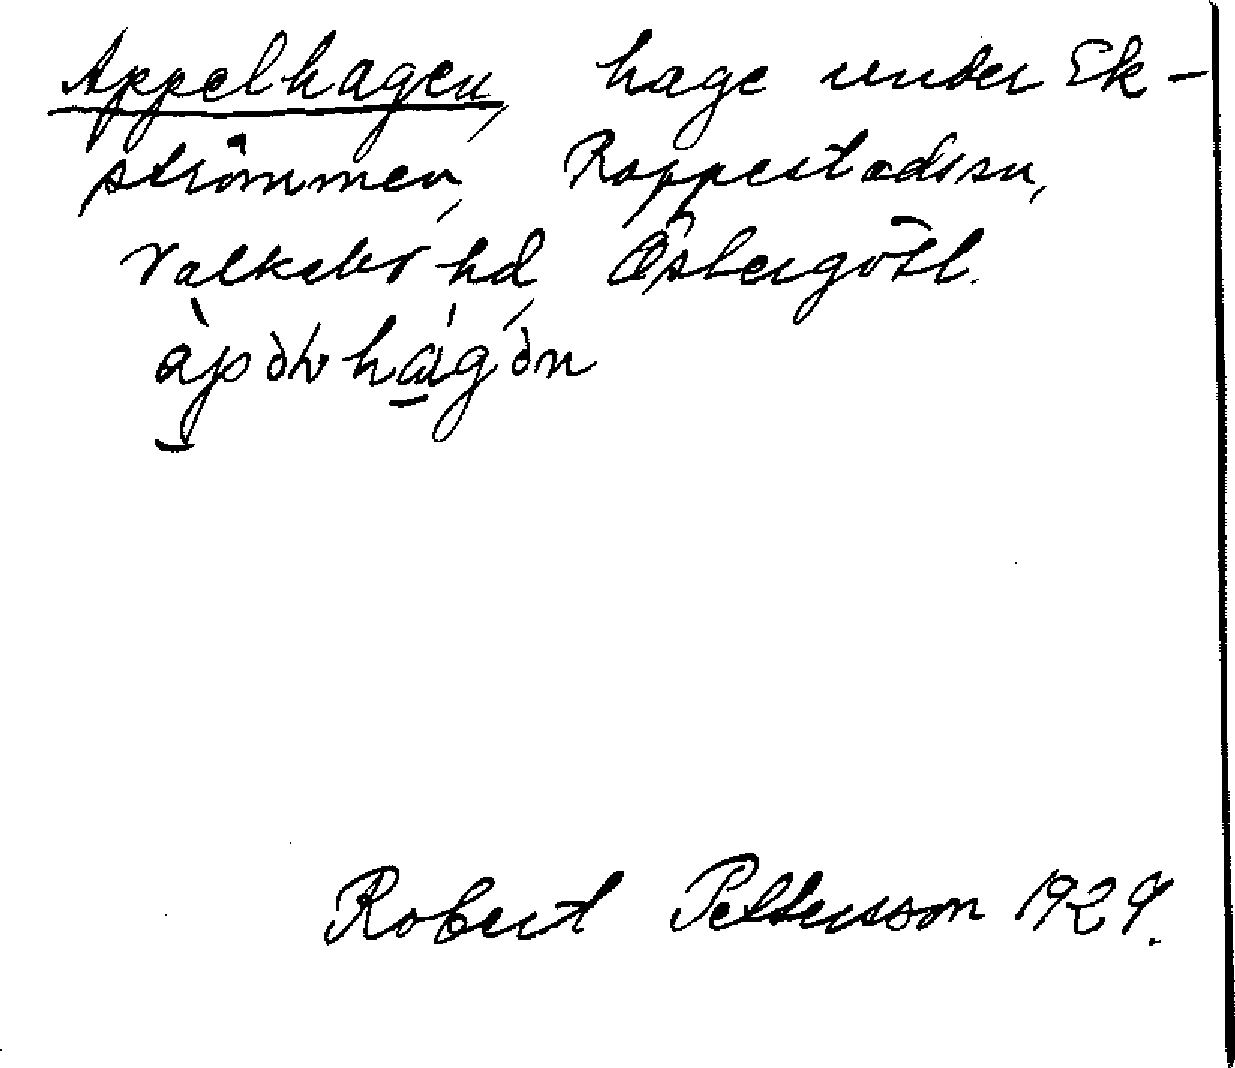 Appelhagen, hage under Ek-
strömmen, Rappestadssn,
Valkebo hd, Östergötl.
àpəlhágən
Robert Pettersson 1929.